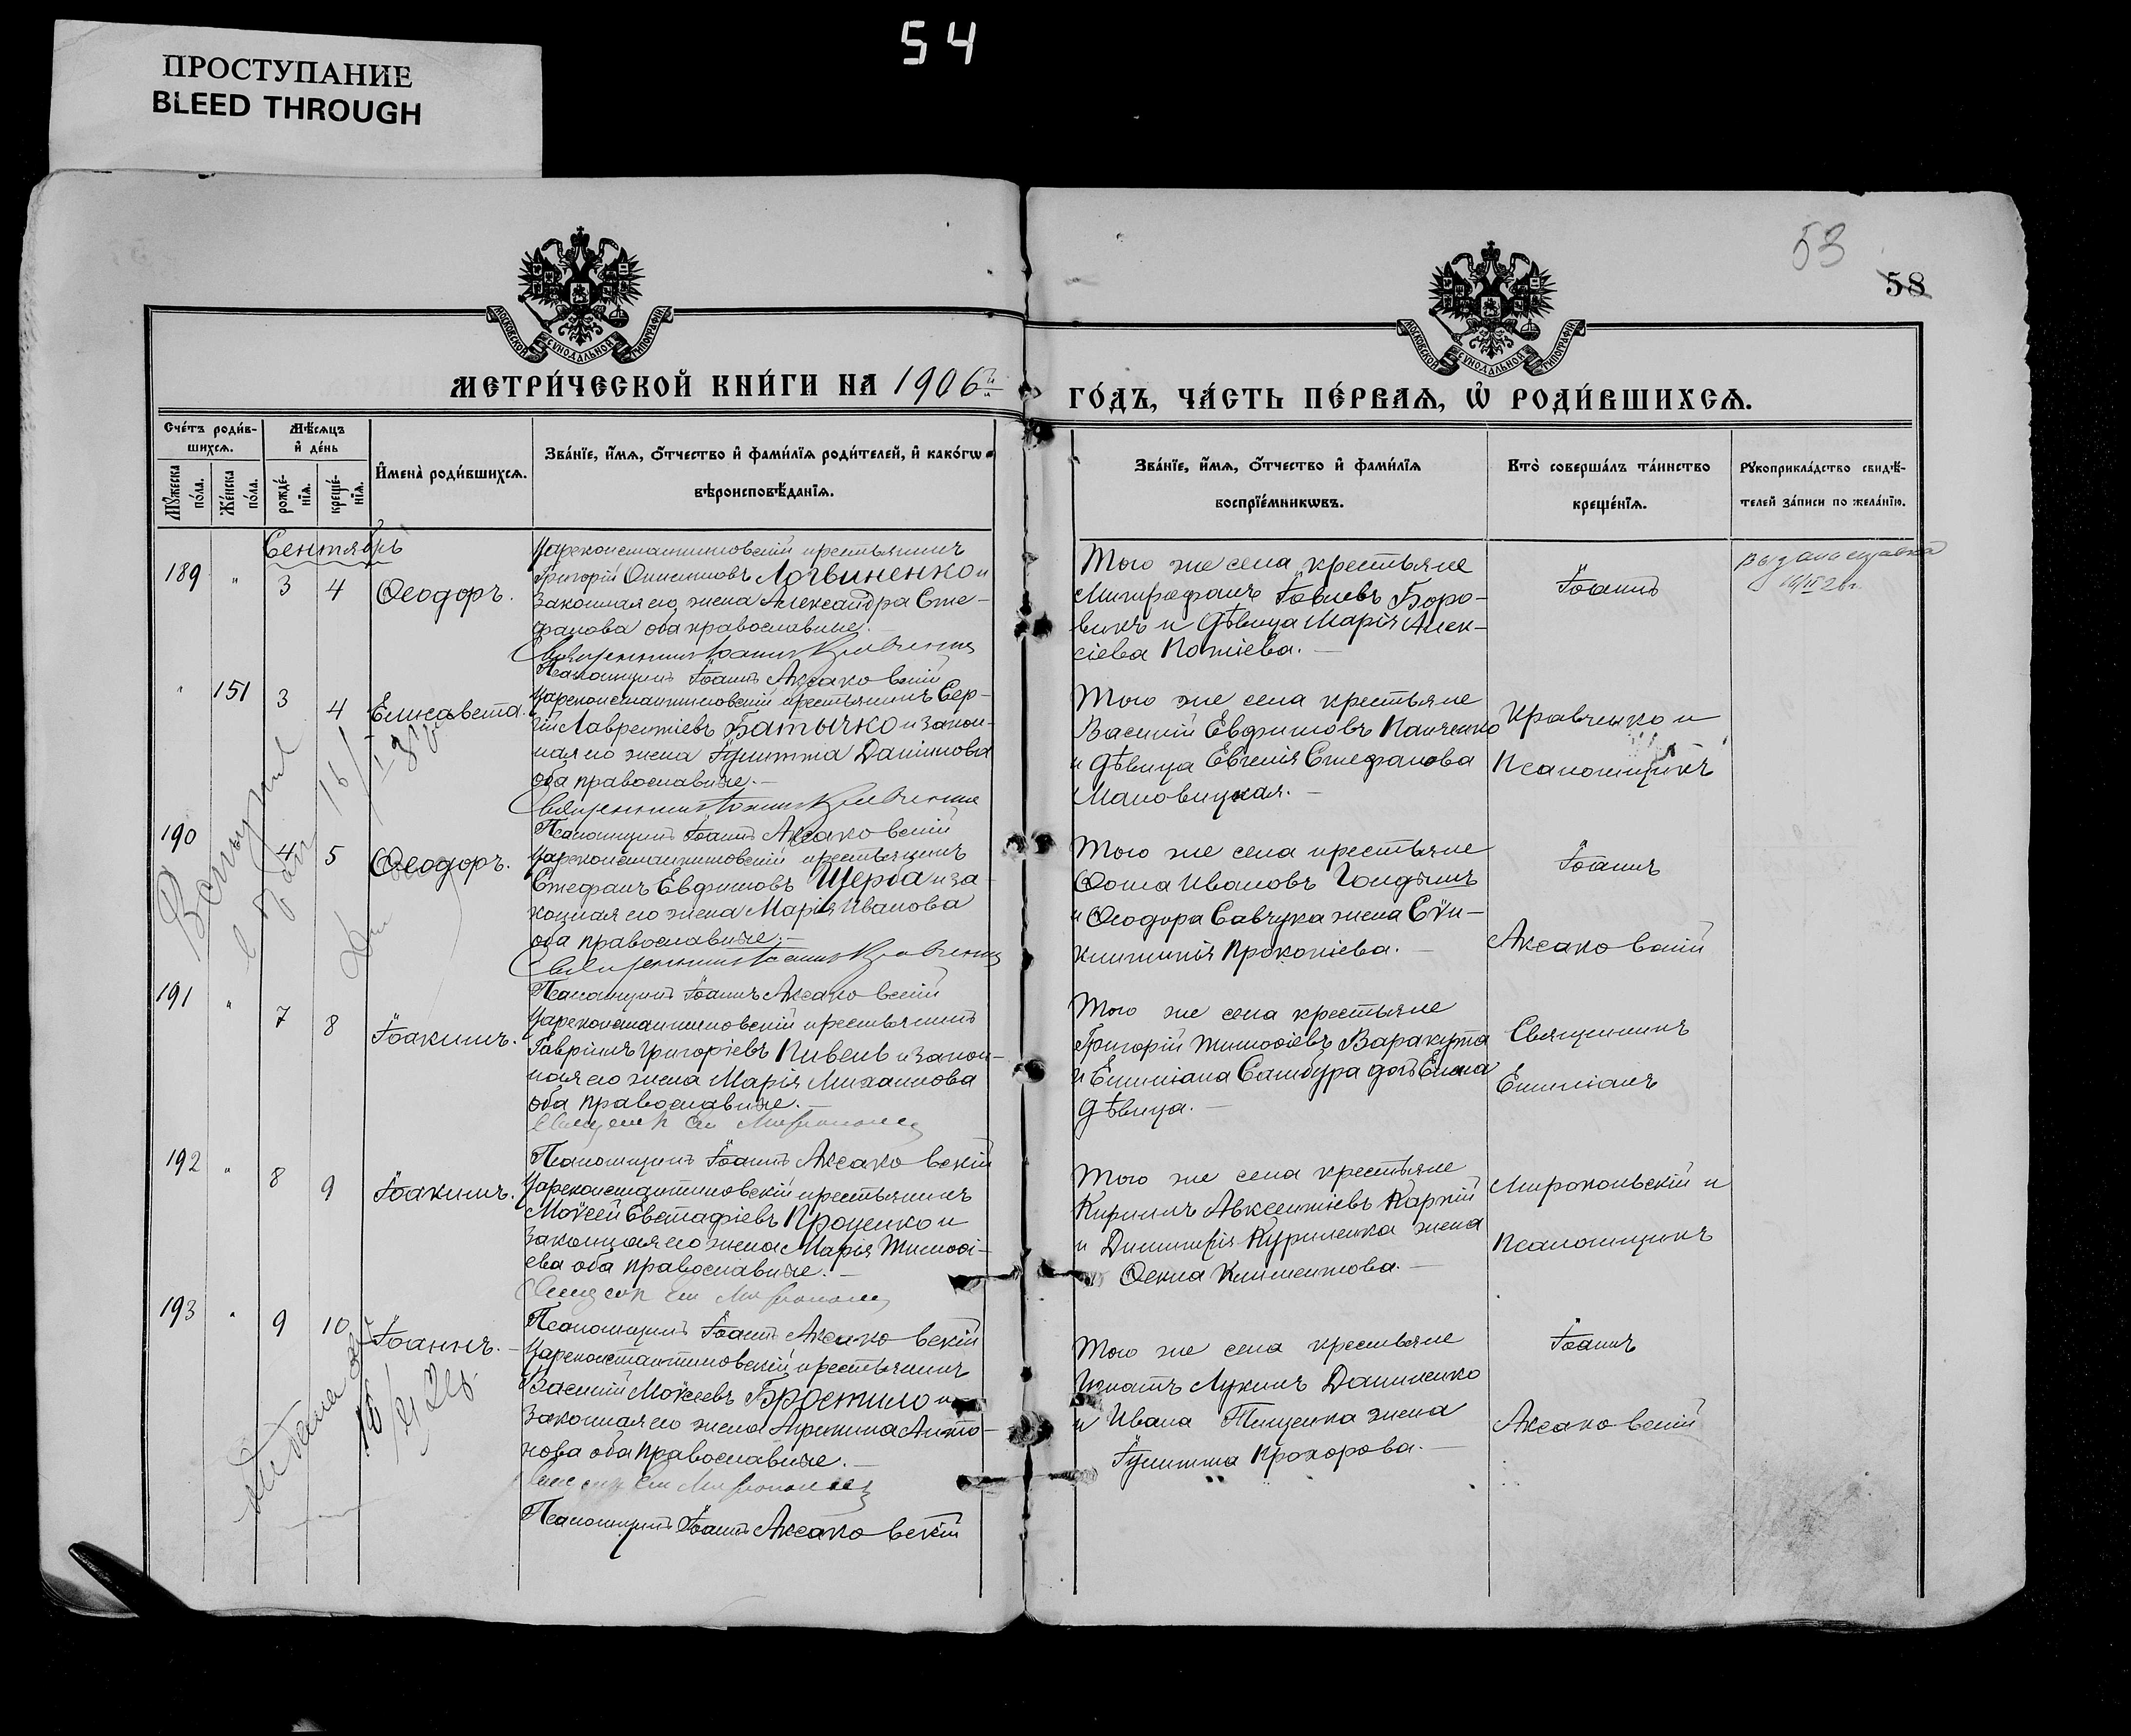 54
ПРОСТУПАНИЕ
BLEED THROUGH
53
58
МОСКОВСКОЙ СѴНОДАЛЬНОЙ ТИПОГРАФІИ
МОСКОВСКОЙ СѴНОДАЛЬНОЙ ТИПОГРАФІИ
МЕТРИ́ЧЕСКОЙ КНИ́ГИ НА 1906й
ГО́ДЪ, ЧА́СТЬ ПЕ́РВАѦ, Ѡ҆ РОДИ́ВШИХСѦ.
Сче́тъ роди́в-
шихсѧ.
Мꙋ́жеска по́ла.
Же́нска по́ла.
Мѣ́сѧцъ
и҆ де́нь
рожде́-
нїѧ.
креще́-
нїѧ.
И҆мена̀ роди́вшихсѧ.
Зва́нїе, и҆́мѧ, ѻ҆́тчество и҆ фами́лїѧ роди́телей, и҆ како́гѡ
вѣроисповѣ́данїѧ.
Зва́нїе, и҆́мѧ, ѻ҆́тчество и҆ фами́лїѧ
воспрїе́мникѡвъ.
Кто̀ соверша́лъ та́инство
креще́нїѧ.
Рꙋкоприкла́дство свидѣ́-
телей за́писи по жела́нїю.
Сентябрь
189 " 3 4 Ѳеодоръ.
Цареконстантиновскій крестьянинъ
Григорій Онисимовъ Логвиненко и
законная его жена Александра Сте-
фанова оба православные.
Священникъ Іоаннъ Кравченко
Псаломщикъ Іоаннъ Аксаковскій
Того же села крестьяне
Митрофанъ Іовлевъ Боро-
викъ и дѣвица Марія Алек-
сіева Потіева.
Іоаннъ
выдана справка
" 151 3 4 Елисавета.
Цареконстантиновскій крестьянинъ Сер-
гій Лаврентіевъ Батычко и закон-
ная его жена Іулитта Даніилова
оба православные.
Священникъ Іоаннъ Кравченко
Псаломщикъ Іоаннъ Аксаковскій
Того же села крестьяне
Василій Евфимовъ Панченко
и дѣвица Евгенія Стефанова
Малозицкая.
Кравченко и
Псаломщикъ
190 4 5 Ѳеодоръ.
Цареконстантиновскій крестьянинъ
Стефанъ Евфимовъ Щерба и за-
конная его жена Марія Иванова
оба православные.
Священникъ Іоаннъ Кравченко
Псаломщикъ Іоаннъ Аксаковскій
Того же села крестьяне
Ѳома Ивановъ Голдынъ
и Ѳеодора Савчука жена Сѵн-
клитикія Прокопіева.
Іоаннъ
Аксаковскій
191 " 7 8 Іоакимъ.
Цареконстантиновскій крестьянинъ
Гавріилъ Григоріевъ Кивель и закон-
ная его жена Марія Михаилова
оба православные.
Псаломщикъ Іоаннъ Аксаковскій
Того же села крестьяне
Григорій Тимоѳіевъ Варакута
и Емиліана Самбура дочь Елена
дѣвица.
Священникъ
Емиліанъ
192 " 8 9 Іоакимъ.
Цареконстантиновскій крестьянинъ
Моѵсей Евстафіевъ Проценко и
законная его жена Марія Тимоѳі-
ева оба православные.
Псаломщикъ Іоаннъ Аксаковскій
Того же села крестьяне
Кириллъ Авксентіевъ Карпій
и Димитрія Куриленка жена
Ѳекла Климентова.
Миропольскій и
псаломщикъ
193 " 9 10 Іоаннъ.
Цареконстантиновскій крестьянинъ
Василій Моѵсеевъ Бростило и
законная его жена Агрипина Анто-
нова оба православные.
Псаломщикъ Іоаннъ Аксаковскій
Того же села крестьяне
Игнатъ Лукинъ Даниленко
и Ивана Тищенка жена
Іулитта Прохорова.
Іоаннъ
Аксаковскій